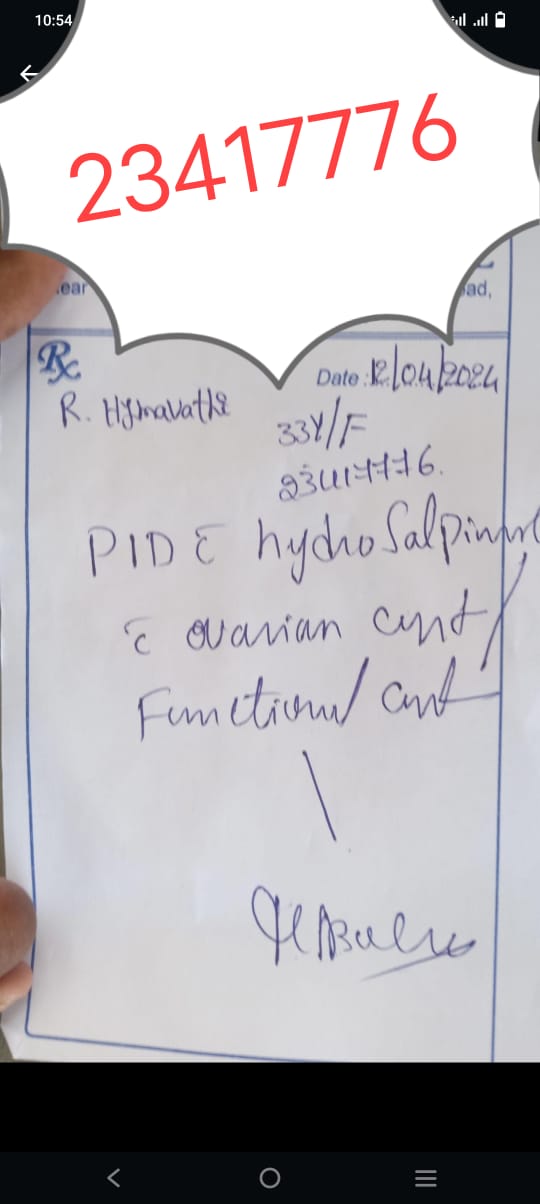 10:54
23417776
ear
ad,
Rx
Date: 12/04/2024
R. Hymavathi
33Y/F
23417776.
PID c̄ hydrosalpinx
c̄ ovarian cyst/
Functional cyst